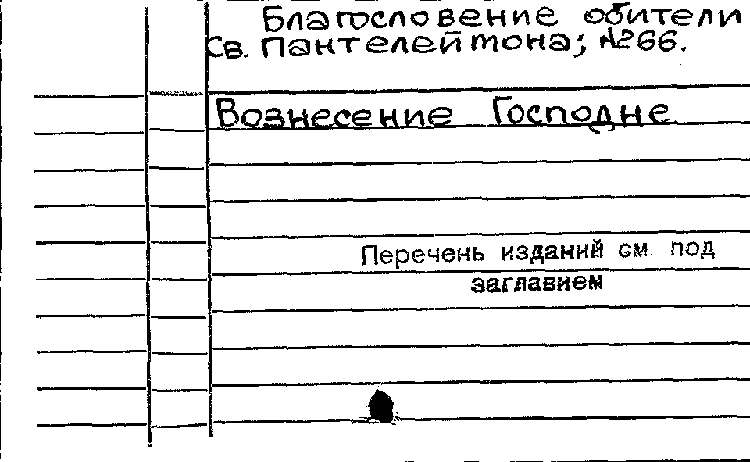 Благословение обители
Св. Пантелеймона; №66.
Вознесение Господне
Перечень изданий см под
заглавием